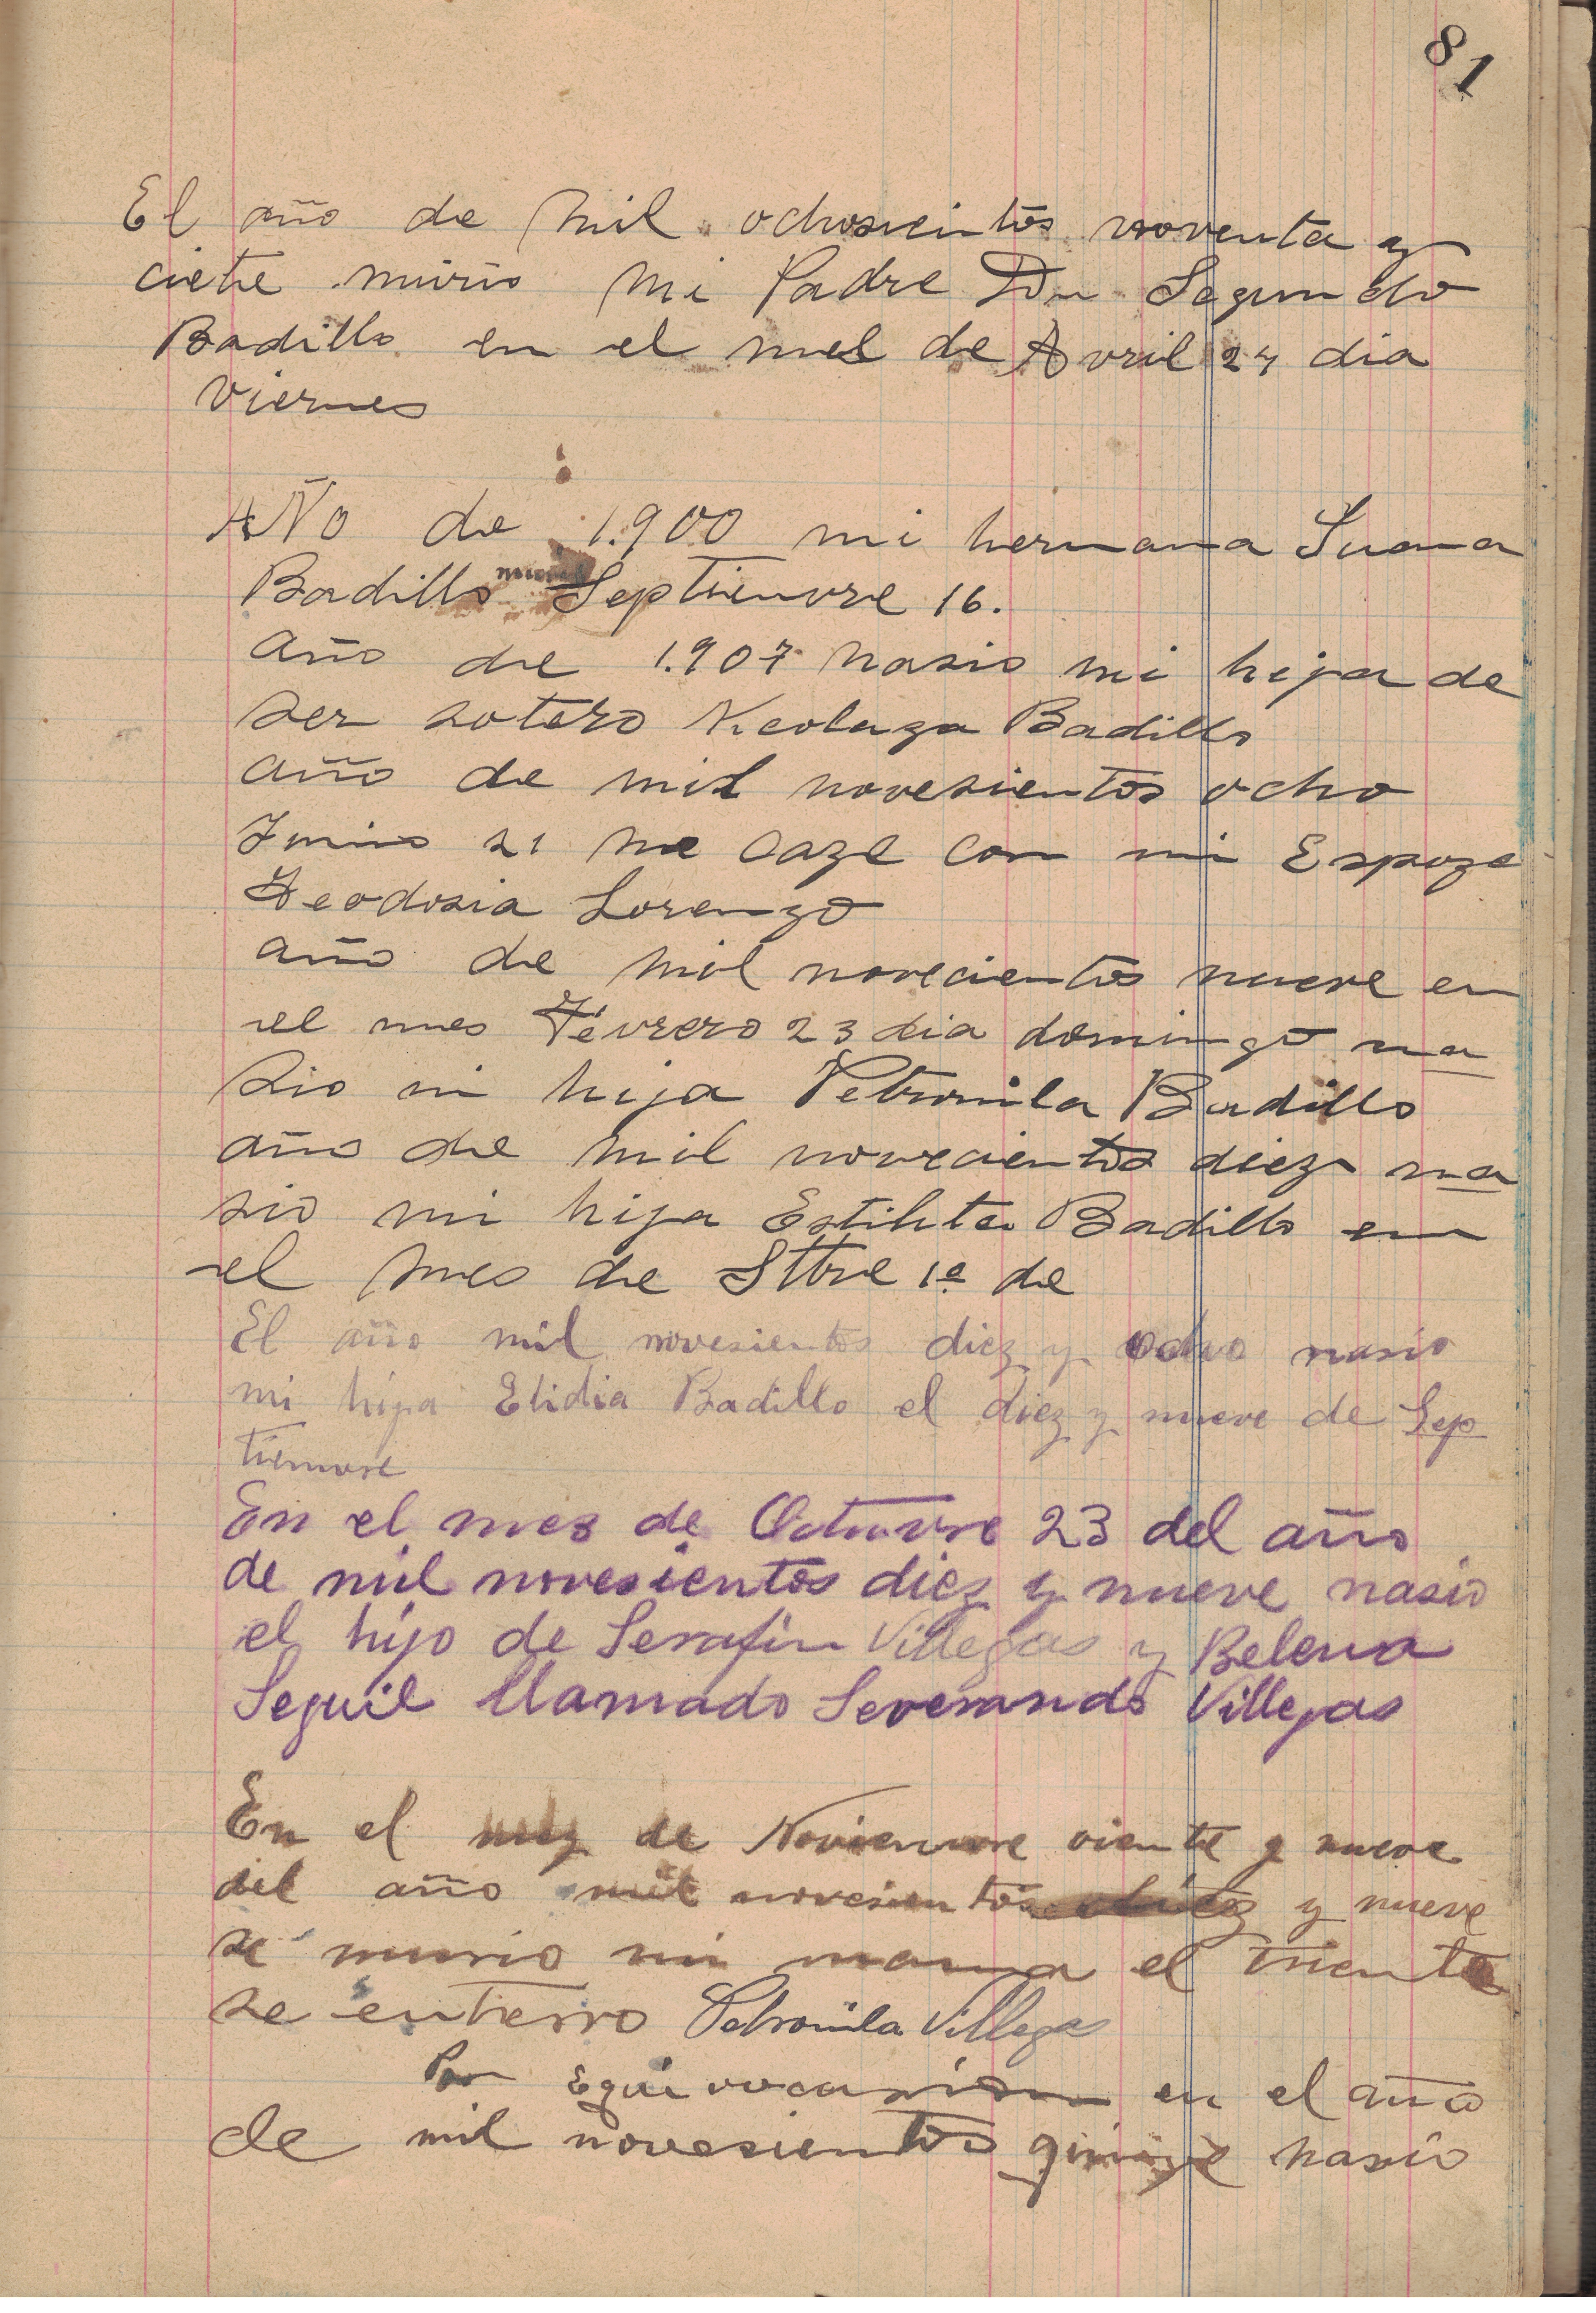 81
El año de mil ochosientos noventa y
ciete murio mi Padre Don Segundo
Badillo en el mes de Avril 24 dia
viernes
AÑO de 1.900 mi hermana Juana
Badillo murio Septienvre 16.
año de 1.907 nasio mi hija de
ser sotero Nicolaza Badillo
año de mil novesientos ocho
Junio 21 me caze con mi Espoza
Teodosia Lorenzo
año de mil novecientos nueve en
el mes Fevrero 23 dia domingo na
sio mi hija Petronila Badillo
año de mil novecientos diez na
sio mi hija Badillo en
el mes de Sttbre 1º de
El año mil novesientos diez y ocho nasio
mi hija Elidia Badillo el diez y nueve de Sep
tienvre
En el mes de Octuvre 23 del año
de mil novesientos diez y nueve nasio
el hijo de Serafin Villegas y Belena
Seguil llamado Severando Villegas
En el mez de Novienvre viente y nueve
del año mil novesientos diez y nueve
se murio mi mama el trienta
se entierro Petronila Villegas
Por equivocasion en el año
de mil novesientos qinize nasio